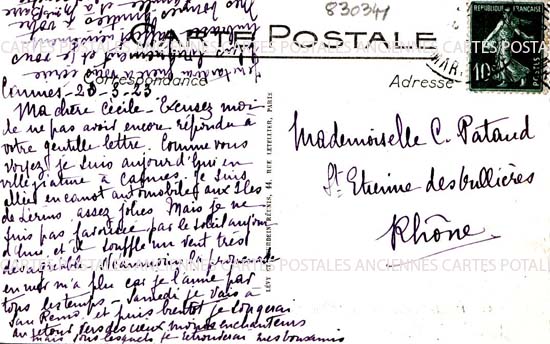 830341
CARTE POSTALE
Correspondance
Adresse
RÉPUBLIQUE FRANÇAISE
10
Cannes - 20-3-23
Ma chère Cécile - Excusez moi
de ne pas avoir encore répondu à
votre gentille lettre. Comme vous
voyez je suis aujourd'hui en
villégiature à Cannes. Je suis
allée en canot automobile aux Iles
de Lérins, assez jolies. Mais je ne
suis pas favorisée par le soleil aujour
d'hui, et il souffle un vent très
désagréable. Néanmoins la promenade
en mer m'a plu car je l'aime par
tous les temps - Samedi je vais à
San Remo, et puis bientôt je songerai
au retour vers des cieux moins enchanteurs
mais sous lesquels je retrouverai mes
LÉVY ET NEURDEIN RÉUNIS, 44, RUE LETELLIER, PARIS
Mademoiselle C. Pataud
St Etienne des
Rhône
CARTES POSTALES ANCIENNES CARTES POSTALES